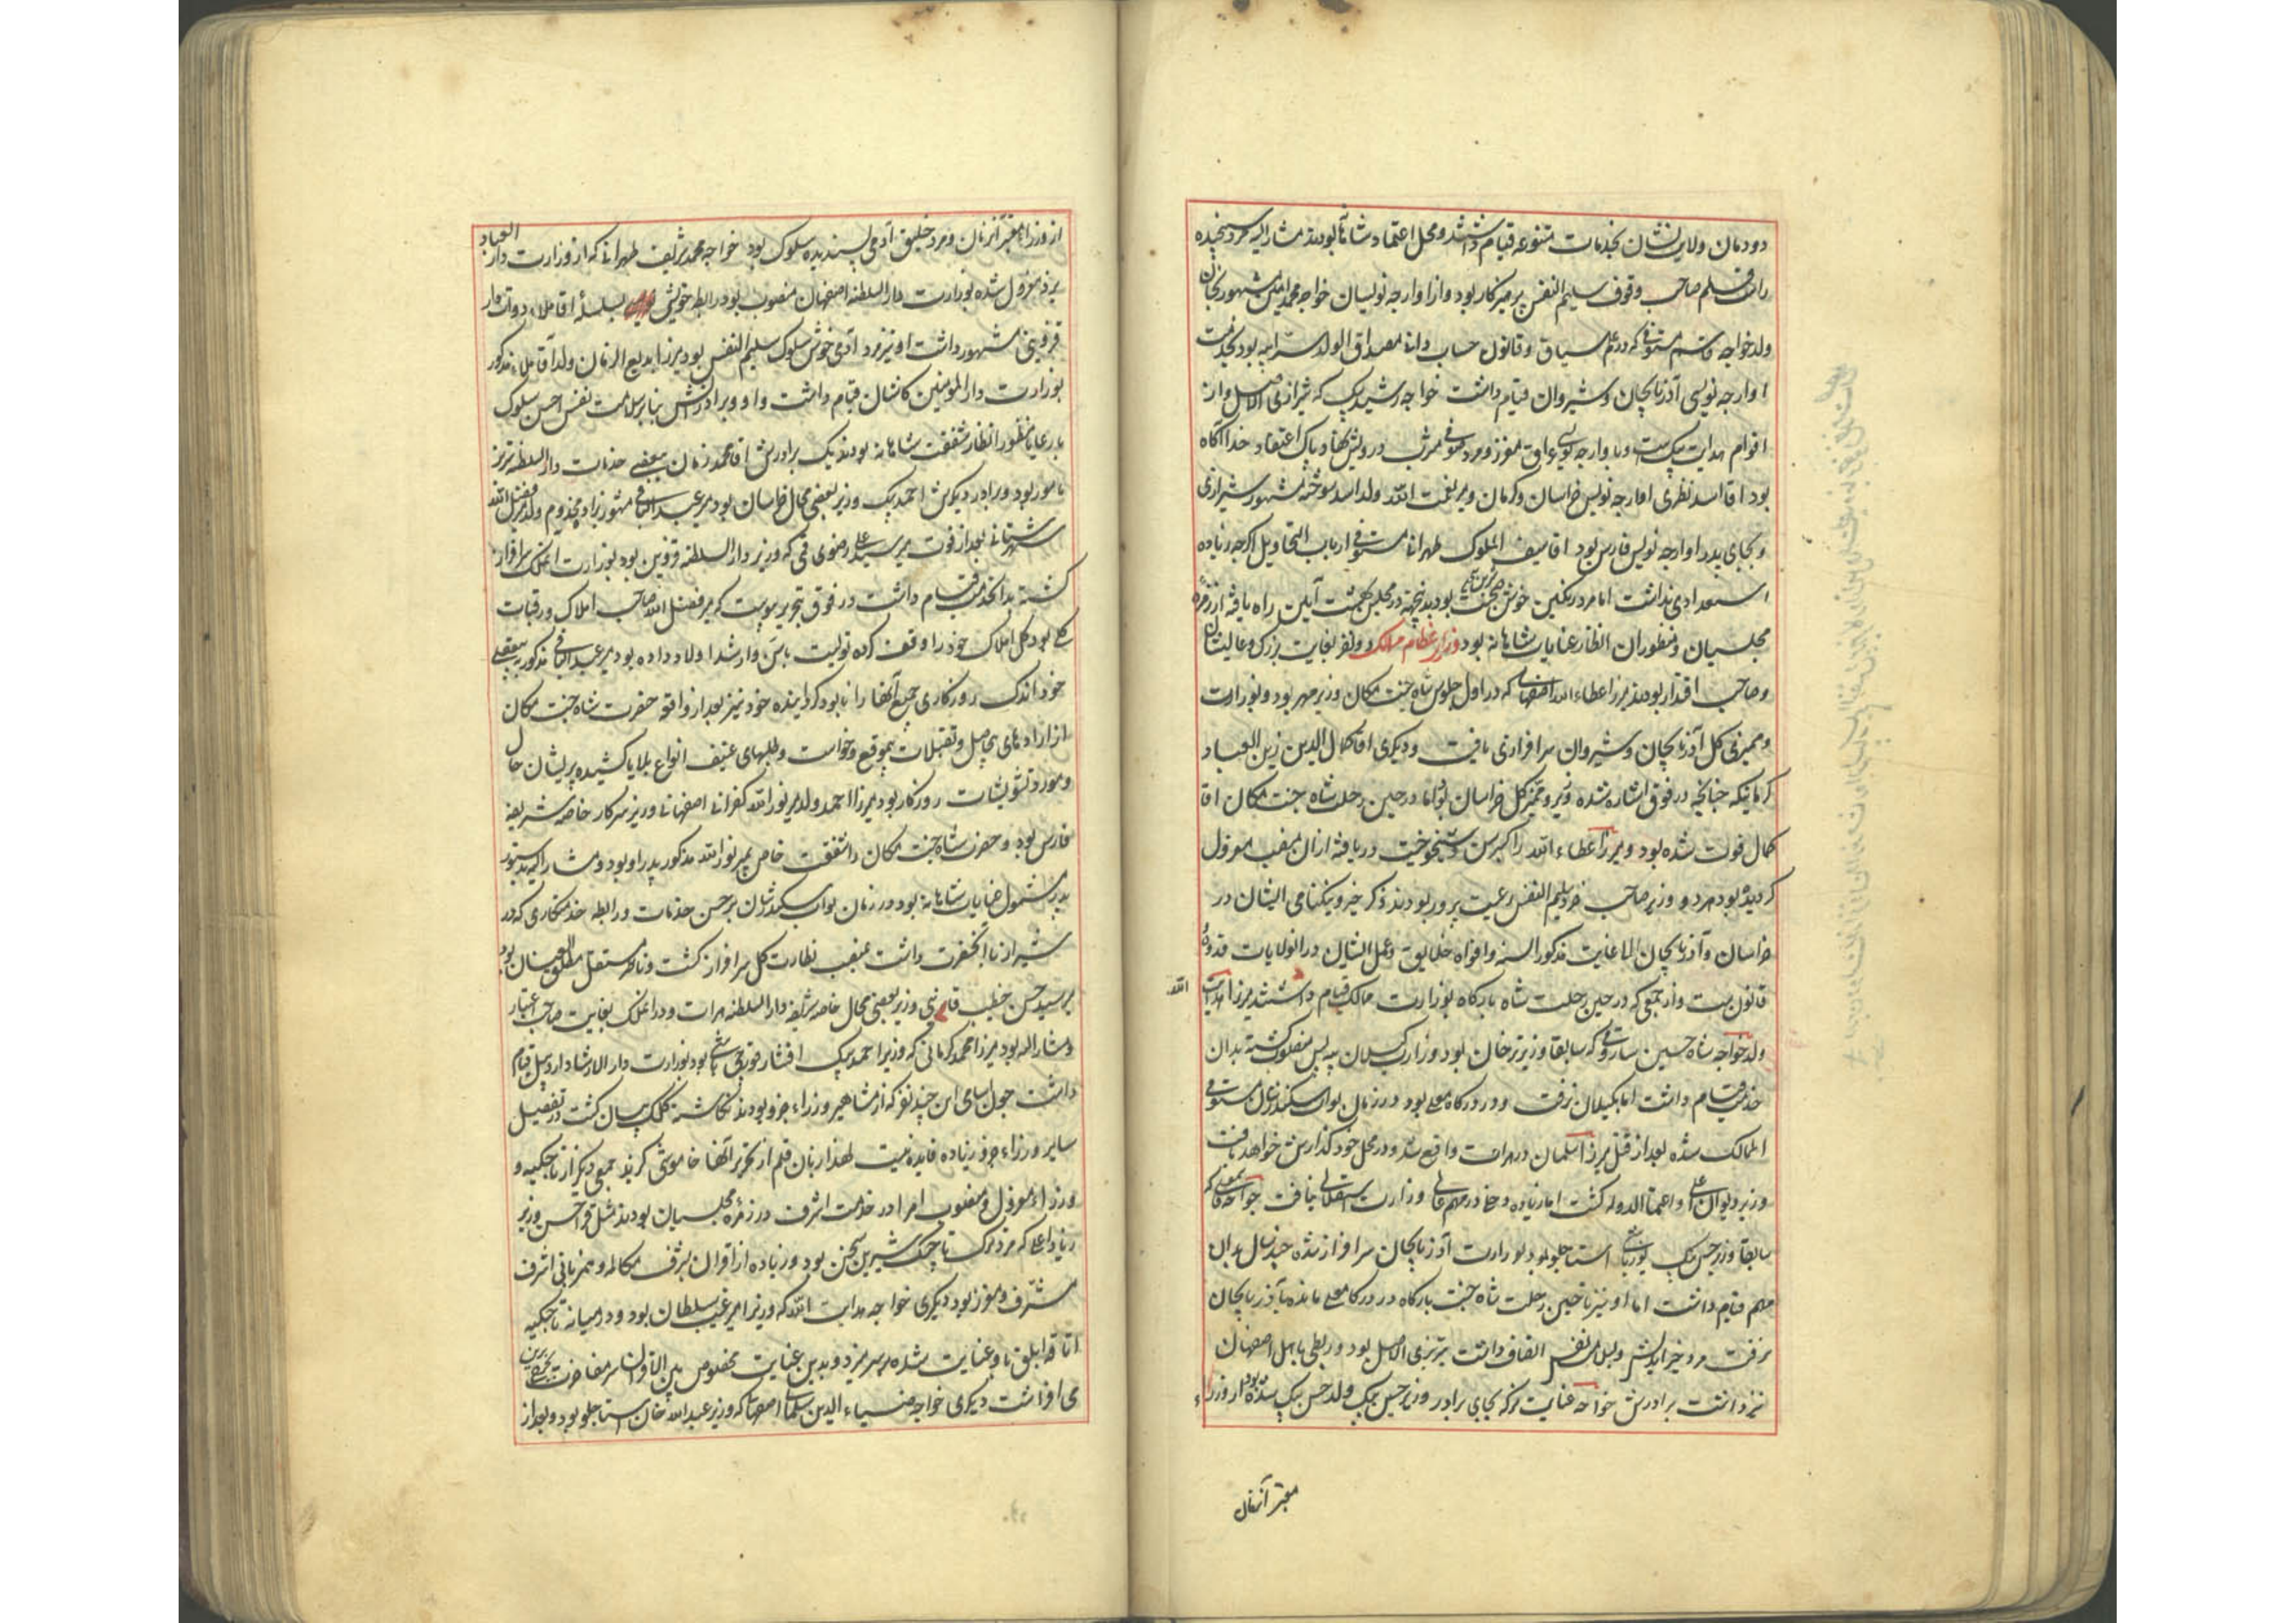 دودمان ولایت نشان بخدمات متنوعه قیام داشتند و محل اعتماد شاهانه بودند مشارالیه مرد سنجیده
راست قلم صاحب وقوف سلیم النفس پرهیزکار بود و از اوارجه نویسان خواجه محمد امین مشهور بخان
ولد خواجه قاسم مستوفی که در علم سیاق و قانون حساب دانی مصداق الولد سر ابیه بود بخدمت
اوارجه نویسی آذربایجان و شیروان قیام داشت خواجه رشید بیک که شیرازی الاصل و از
اقوام هدایت بیک است و باوارجه نویسی عراق معزز و مرد صوفی مشرب درویش نهاد پاک اعتقاد خدا آگاه
بود اقا اسد نظری اوارجه نویس خراسان و کرمان و میر نعمت الله ولد اسد سوخته مشهور شیرازی
و بجای پدر اوارجه نویس فارس بود اقا سیف الملوک طهرانی مستوفی ارباب التحاویل اگرچه زیاده
استعدادی نداشت اما مرد رنگین خوش صحبت بود بدینجهة در مجلس بهشت آیین راه یافته از زمره
مجلسیان و منظوران انظار عنایات شاهانه بود وزرای عظام ممالک دو نفر بغایت بزرگ و عالیشان
و صاحب اقتدار بودند میرزا عطاء الله اصفهانی که در اول جلوس شاه جنت مکان وزیر مهر بود و بوزارت
و ممیزی کل آذربایجان و شیروان سرافرازی یافت و دیگری اقا کمال الدین زین العباد
کرمانیکه چنانچه در فوق اشاره شده وزیر و ممیز کل خراسان بود اما در حین رحلت شاه جنت مکان اقا
کمال فوت شده بود و میرزا عطاء الله را کبر سن و شیخوخیت دریافته از ان منصب معزول
گردیده بود هر دو وزیر صاحب خرد سلیم النفس رعیت پرور بودند ذکر خیر و نیکنامی ایشان در
خراسان و آذربایجان الی الغایت مذکور السنه و افواه خلایق و عمل ایشان در انولایات قدوه
قانون است و از جمعی که در حین رحلت شاه بارگاه بوزارت ممالک قیام داشتند میرزا هدایت الله
ولد خواجه شاه حسین ساروقی که سابقا وزیر ترخان بود وزارت گیلان بیه پس منصوب گشته بدان
خدمت قیام داشت اما بگیلان نرفت و در درگاه معلی بود در زمان نواب سکندر شان مستوفی
الممالک شده بعد از قتل میرزا سلمان در هرات واقع شد و در محل خود گذارش خواهد یافت
وزیر دیوان اعلی و اعتماد الدوله گشت اما زیاده دخلی در مهم عالی وزارت استقلالی نیافت خواجه قاسمعلی که
سابقا وزیر حسن بیک یوزباشی استاجلو بود بوزارت آذربایجان سرافراز شده چند سال بدان
مهم قیام داشت اما او نیز تا حین رحلت شاه جنت بارگاه در درگاه معلی مانده بآذربایجان
نرفت مرد خیر اندیش و بسلامت نفس اتصاف داشت تبریزی الاصل بود و ربطی باهل اصفهان
نیز داشت برادرش خواجه عنایت مرکه بجای برادر وزیر حسین بیک ولد حسن بیک شده بود از وزراء
معتبر آنزمان
از وزراء معتبر آنزمان و مرد خلیق آدمی پسندیده سلوک بود خواجه محمد شریف طهرانی که از وزارت دار العباد
یزد معزول شده بوزارت دار السلطنه اصفهان منصوب بود رابطه خویشی بسلسلۀ اقا ملاء دواتدار
قزوینی مشهور داشت او نیز مرد آدمی خوش سلوک سلیم النفس بود میرزا بدیع الزمان ولد آقا ملاء مذکور
بوزارت دار المومنین کاشان قیام داشت و او و برادرانش بنابر سلامت نفس احسن سلوک
با رعایا منظور انظار شفقت شاهانه بودند یک برادرش اقا محمد زمان ببعضی خدمات دار السلطنه تبریز
مامور بود و برادر دیگرش احمد بیک وزیر بعضی محال خراسان بود میر عبد الباقی مشهور بزاده مخدوم ولد میر فضل الله
شهرستانی بعد از فوت میر سید علی رضوی قمی که وزیر دار السلطنه قزوین بود بوزارت انملک سرافراز
گشته بدانخدمت قیام داشت در فوق بتحریر پیوست که میر فضل الله صاحب املاک و رقبات
کلی بود کل املاک خود را وقف کرده تولیت باسن و ارشد اولاد داده بود میر عبد الباقی مذکور ببعضی
خود اندک روزگاری جمیع آنها را نابود گردانیده خود نیز بعد از واقعه حضرت شاه جنت مکان
از اراده های بیحاصل و تقبلات بیموقع و خواست و طلبهای عنیف انواع بلایا کشیده پریشان حال
و مورد تشویشات روزگار بود میرزا احمد ولد میر نور الله کفرانی اصفهانی وزیر سرکار خاصه شریفه
فارس بود و حضرت شاه جنت مکان را شفقت خاص بمیر نور الله مذکور پدر او بود و مشارالیه بدستور
پدر مشمول عنایات شاهانه بود در زمان نواب سکندر شان بر حسن خدمات و رابطه خدمتکاری که در
شیراز با آنحضرت داشت بمنصب نظارت کل سرافراز گشت و ناظر مستقل مطلق العنان بود
میر سید حسن خطیب قاینی وزیر بعضی محال خاصه شریفه دار السلطنه هرات و در انملک بغایت صاحب اعتبار
و مشارالیه بود میرزا محمد کرمانی که وزیر احمد بیک افشار قورچی باشی بود بوزارت دار الارشاد اردبیل قیام
داشت چون اسامی این چند نفر که از مشاهیر وزراء جزو بودند نگاشته کلک بیان گشت در تفصیل
سایر وزراء جزو زیاده فایده نیست لهذا زبان قلم از تحریر آنها خاموشی گزید جمعی دیگر از تاجیکیه و
وزراء معزول و منصوب امرا در خدمت اشرف در زمرۀ مجلسیان بودند مثل قوا حسن وزیر
زیاد اعلی که مرد ترک تاجیک شیرین سخن بود و زیاده از اقران بشرف مکالمه و همزبانی اشرف
مشرف و معزز بود دیگری خواجه هدایت الله که وزیر امیر غیب سلطان بود و در میانه تاجیکیه
اتاقه ابلق باو عنایت شده بر سر میزد و بدین عنایت مخصوص بین الاقران سر مفاخرت
می افراشت دیگری خواجه ضیاء الدین سلمانی اصفهانی که وزیر عبد الله خان استاجلو بود و بعد از